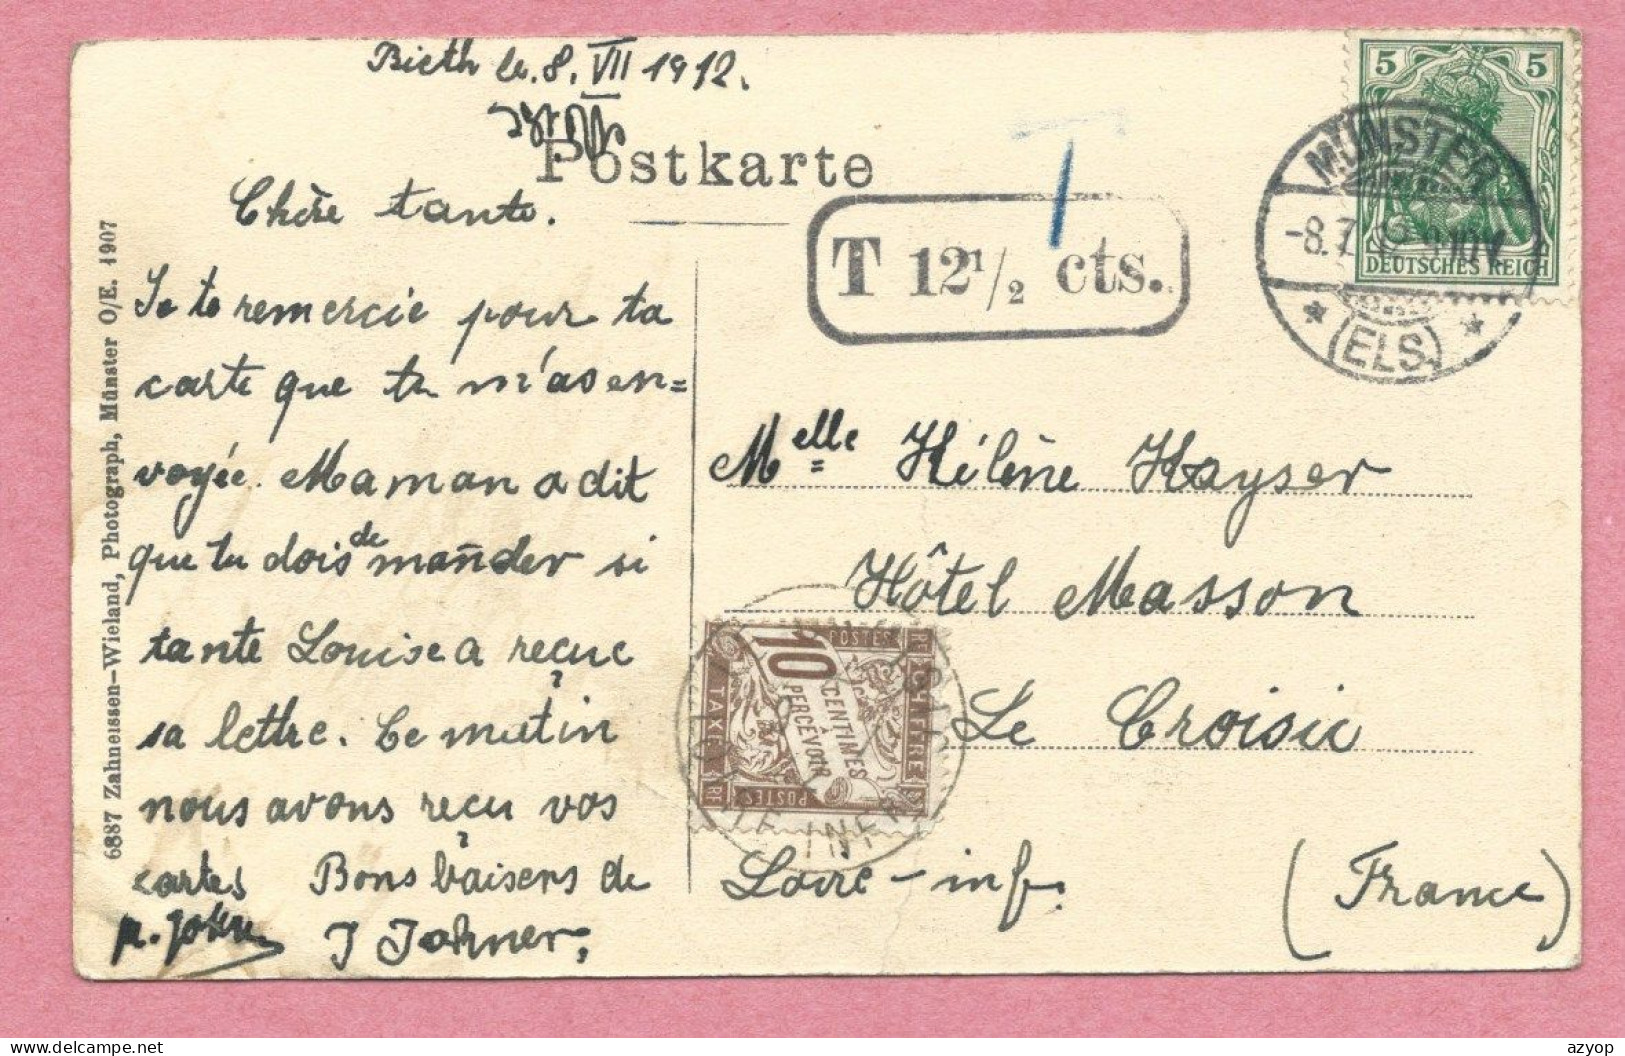 le 8. VII 1912.
Postkarte
Chère tante.
Je te remercie pour ta
carte que tu m'as en=
voyée. Maman a dit
que tu dois demander si
tante Louise a reçue
sa lettre. Ce matin
nous avons reçu vos
cartes Bons baisers de
J Johner.
6887 Zahneissen-Wieland, Photograph, Münster O/E. 1907
T
T 12 1/2 cts.
5 5
DEUTSCHES REICH
MÜNSTER
-8.7.
* (ELS.) *
Melle Hélène Kayser
Hôtel Masson
Le Croisic
Loire-inf.
(France)
10
CENTIMES
PERCEVOIR
CHIFFRE
TAXE
POSTES
POSTES
RE
LOIRE INFRE
azyop